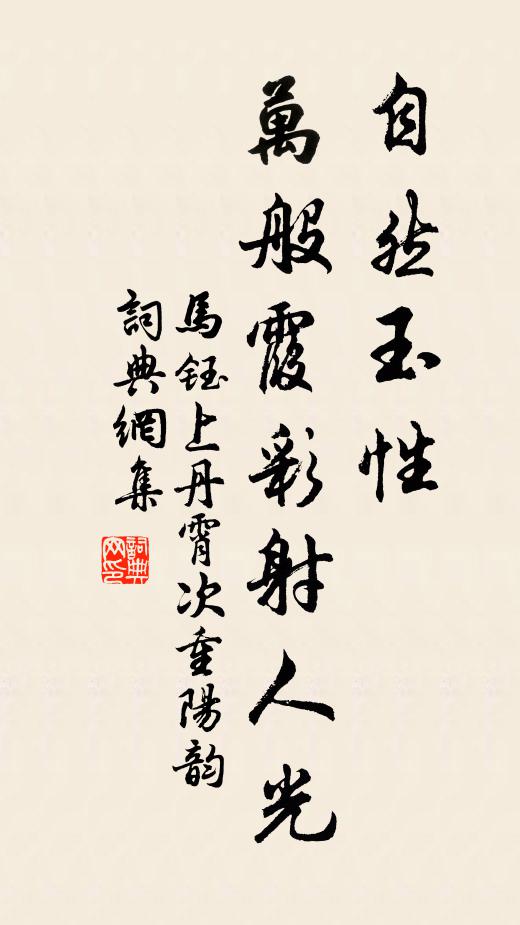 自然玉性
萬般霞彩射人光
馬鈺上丹霄次重陽韵
詞典網集
詞典网印